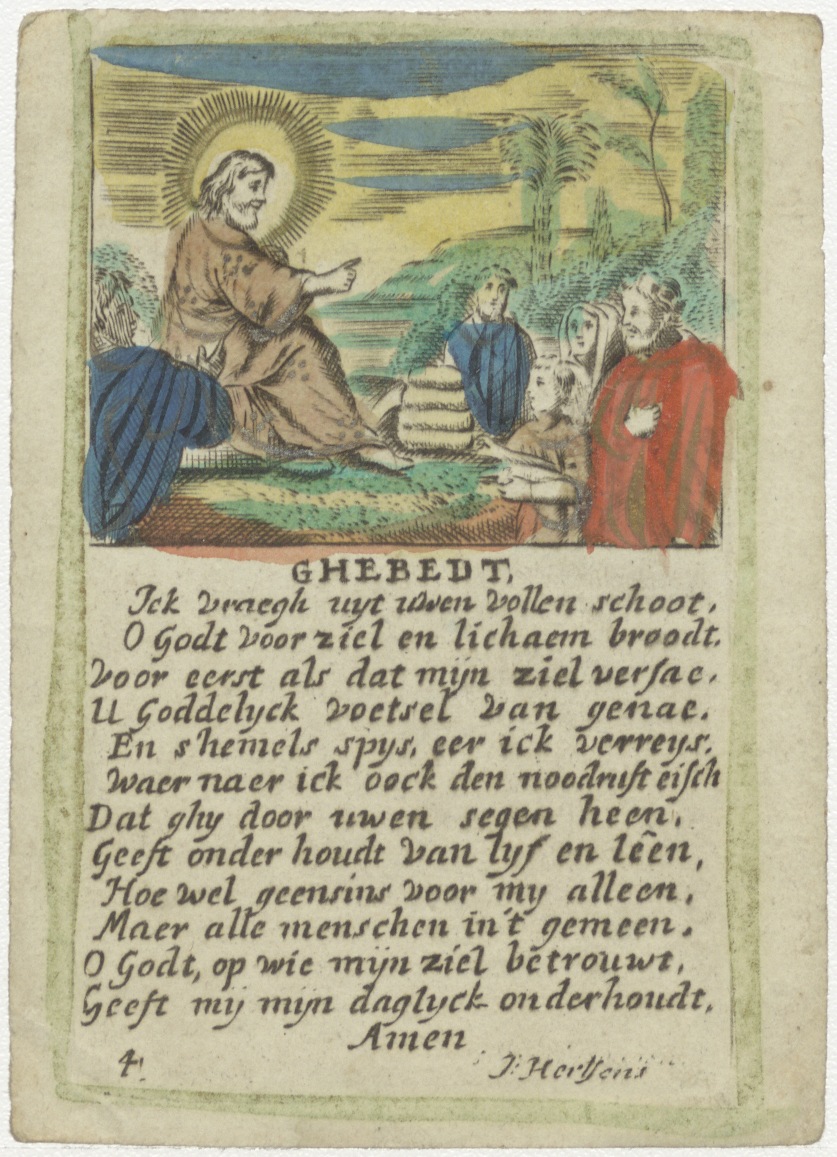 GHEBEDT,
Ick vraegh uyt uwen vollen schoot,
O Godt voor ziel en lichaem broodt.
Voor eerst als dat mijn ziel versae,
U Goddelyck voetsel van genae.
En shemels spys, eer ick verreys.
Waer naer ick oock den noodruft eisch
Dat ghy door uwen segen heen,
Geeft onder houdt van lyf en lêen,
Hoe wel geensins voor my alleen,
Maer alle menschen in't gemeen.
O Godt, op wie mijn ziel betrouwt,
Geeft mij mijn daglyck onderhoudt.
Amen
4.